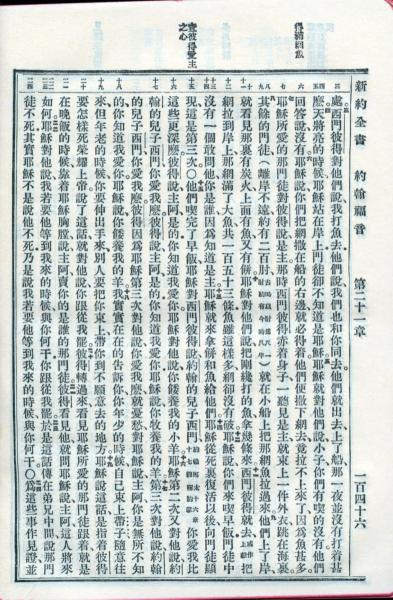 新約全書 約翰福音 第二十一章 一百四十六
得滿網魚
處西門彼得對他們說我打魚去他們說我們也和你同去他們就出去上了船那一夜並沒有打着甚
麼天將亮的時候耶穌站在岸上門徒卻不知道是耶穌耶穌就對他們說小子你們有喫的沒有他們
回答說沒有耶穌說你們把網撒在船的右邊就必得着他們便撒下網去竟拉不上來了因爲魚甚多
耶穌所愛的那門徒對彼得說是主那時西門彼得赤着身子一聽見是主就束上一件外衣跳在海裏
其餘的門徒(離岸不遠約有二百肘)就在小船上把那網魚拉過來他們上了岸
就看見那裏有炭火上面有魚又有餅耶穌對他們說把剛纔打的魚拿幾條來西門彼得就去把
網拉到岸上那網滿了大魚共一百五十三條魚雖這樣多網卻沒有破耶穌說你們來喫早飯門徒中
沒有一個敢問他你是誰因爲知道是主耶穌就來拿餅和魚給他們耶穌從死裏復活以後向門徒顯
查彼得愛主
之心
現這是第三次〇他們喫完了早飯耶穌對西門彼得說約翰的兒子西門你愛我比
這些更深麼彼得說主阿是的你知道我愛你耶穌對他說你餧養我的小羊耶穌第二次又對他說約
翰的兒子西門你愛我麼彼得說主阿是的你知道我愛你耶穌說你牧養我的羊第三次對他說約翰
的兒子西門你愛我麼彼得因爲耶穌第三次對他說你愛我麼就憂愁對耶穌說主阿你是無所不知
的你知道我愛你耶穌說你餧養我的羊我實實在在的告訴你你年少的時候自己束上帶子隨意往
來但年老的時候你要伸出手來別人要把你束上帶你到不願意去的地方耶穌說這話是指着彼得
要怎樣死榮耀上帝說了這話就對他說你跟從我罷彼得轉過來看見耶穌所愛的那門徒跟着就是
在晚飯的時候靠着耶穌胸膛說主阿賣你的是誰的那門徒彼得看見他就問耶穌說主阿這人將來
如何耶穌對他說我若要他等到我來的時候與你何干你跟從我罷於是這話傳在弟兄中間說那門
徒不死其實耶穌不是說他不死乃是說我若要他等到我來的時候與你何干〇爲這些事作見證並